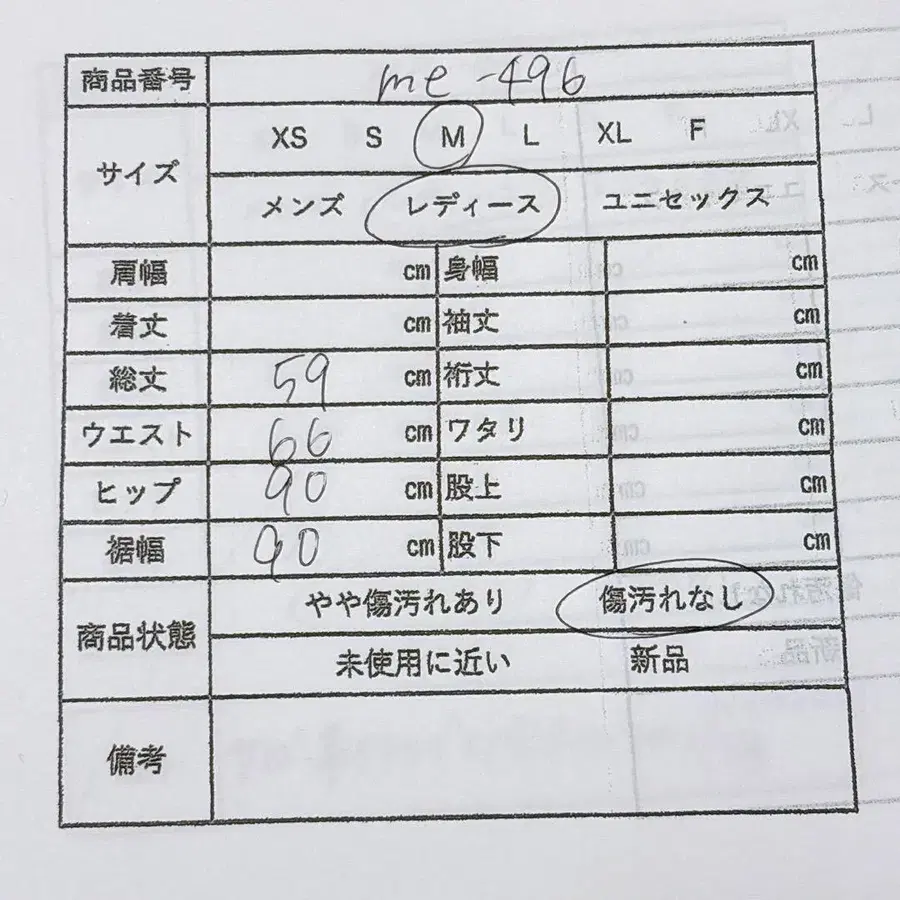 商品番号 me-496
サイズ XS S M L XL F
メンズ レディース ユニセックス
肩幅 cm 身幅 cm
着丈 cm 袖丈 cm
総丈 59 cm 裄丈 cm
ウエスト 66 cm ワタリ cm
ヒップ 90 cm 股上 cm
裾幅 90 cm 股下 cm
商品状態 やや傷汚れあり 傷汚れなし
未使用に近い 新品
備考